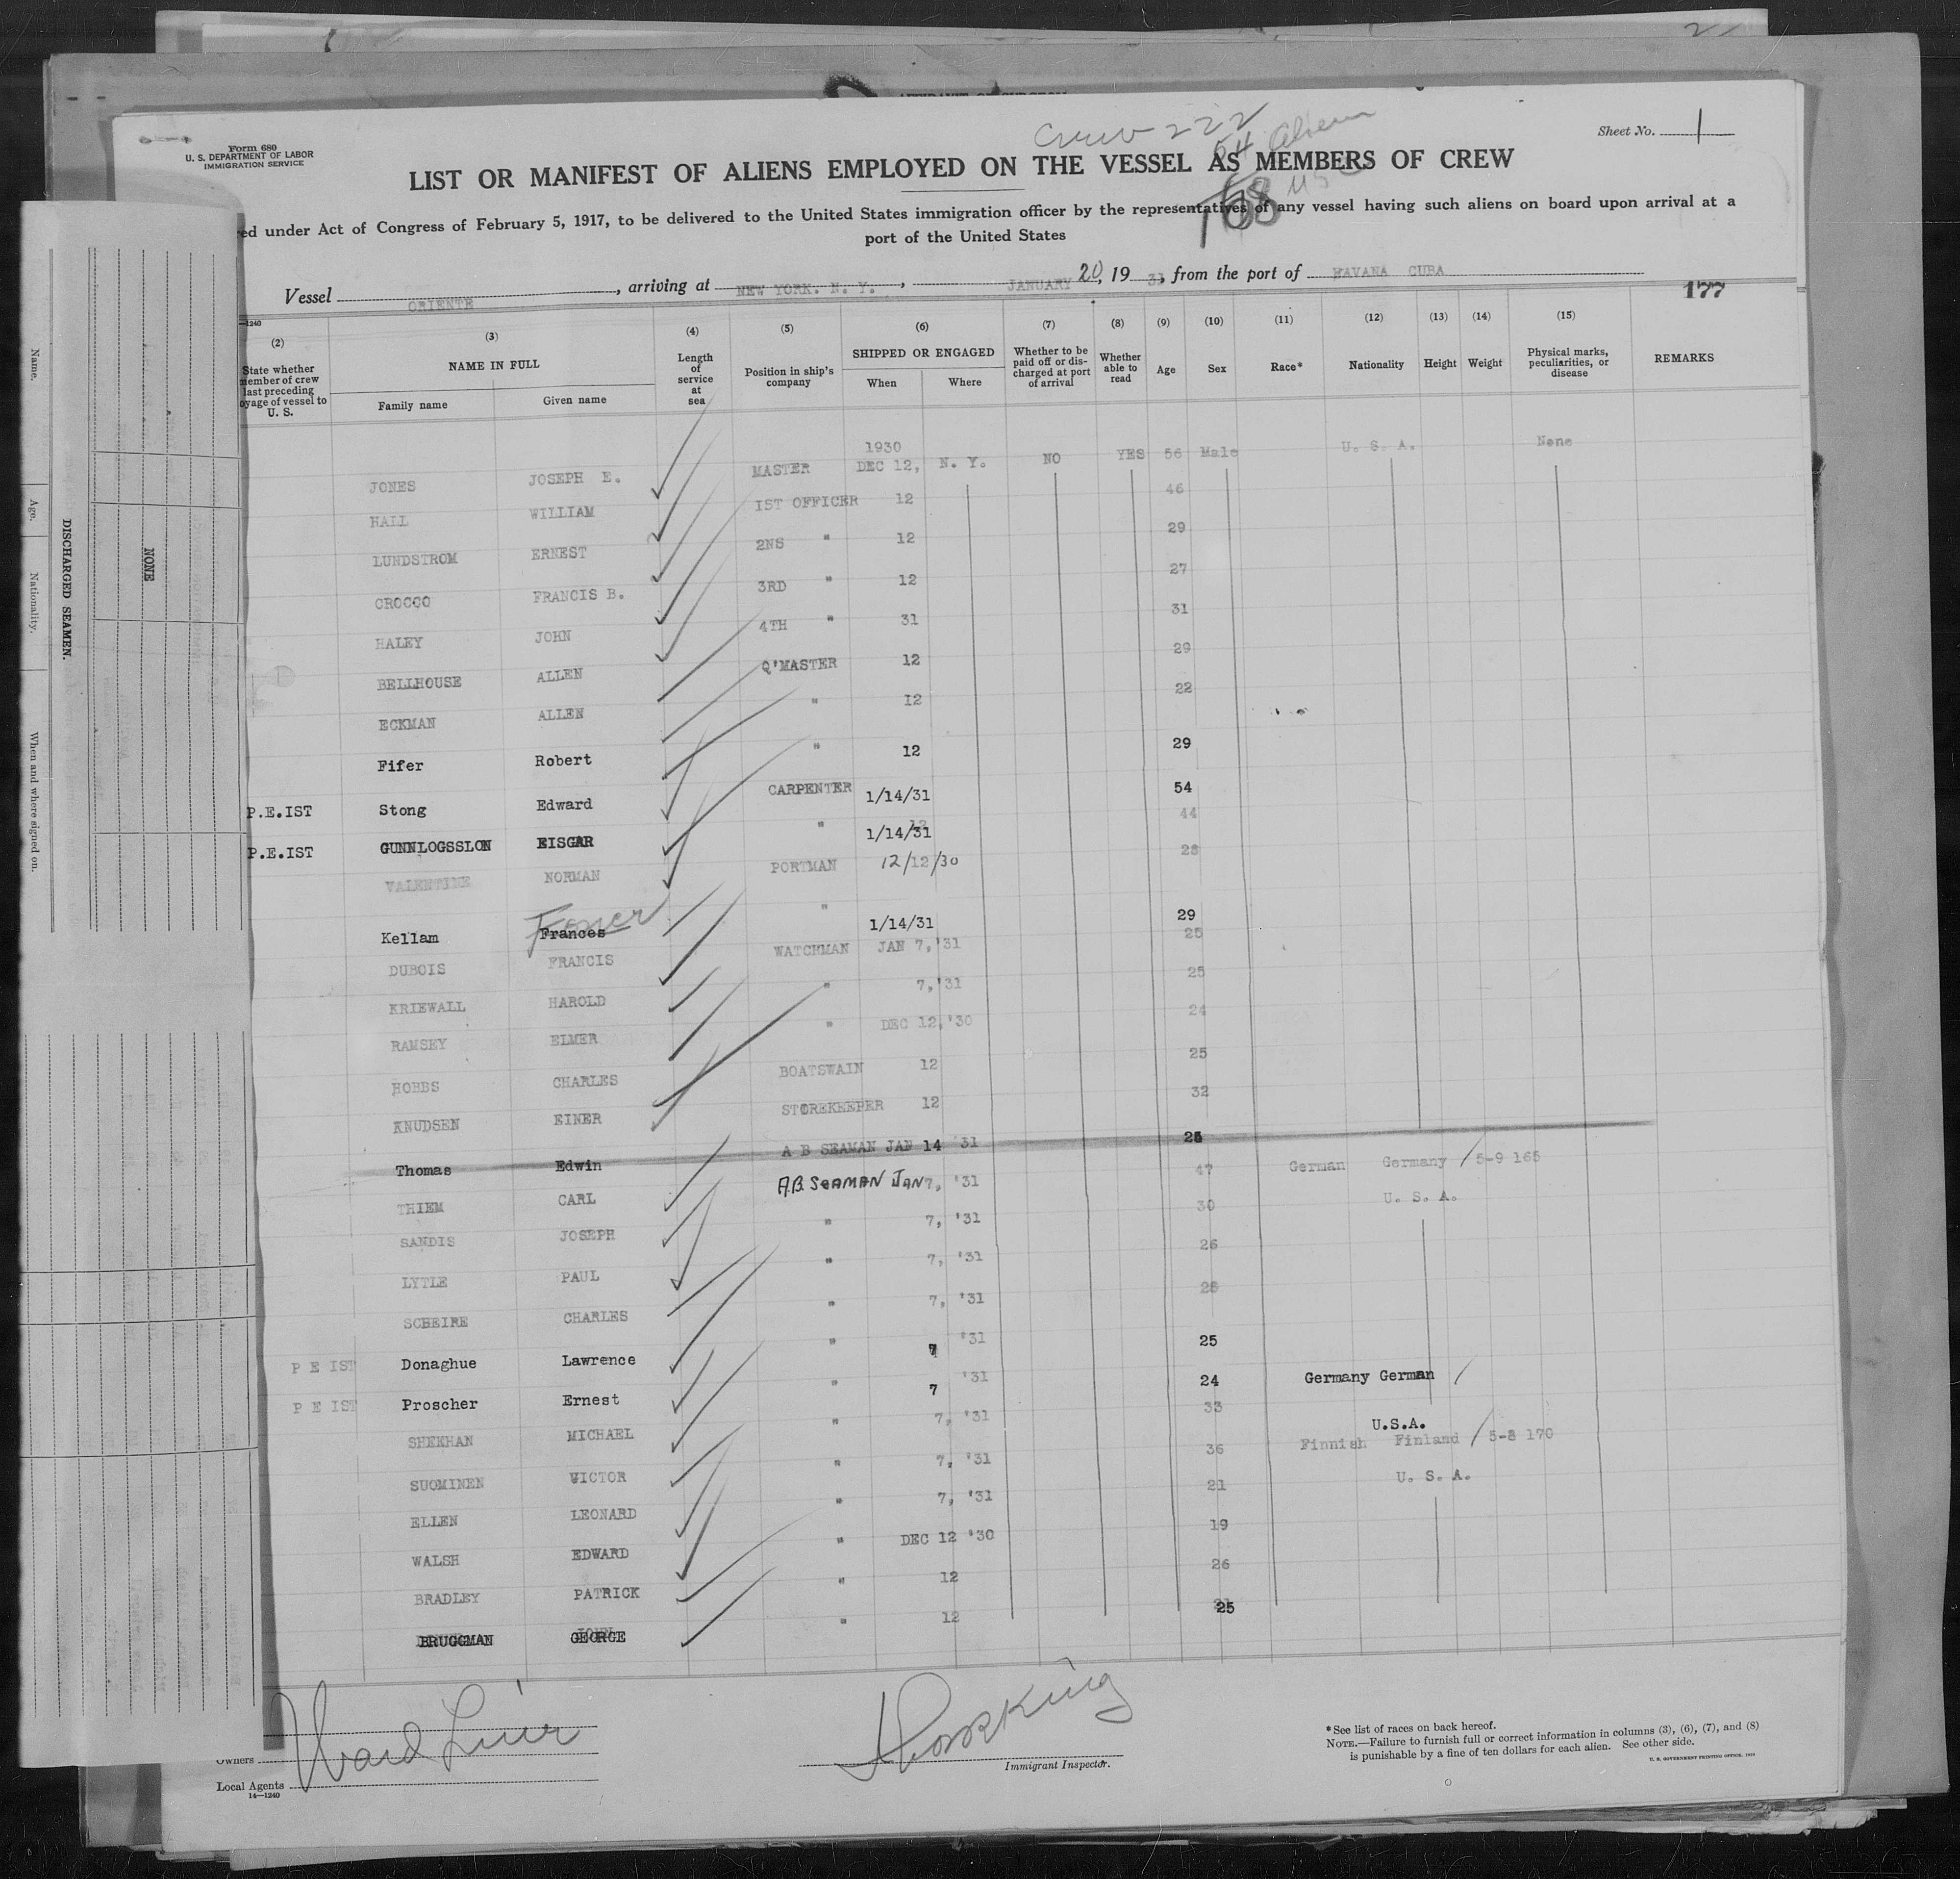 Crew 222
54 Alien
168 US
Sheet No. 1
Form 680
U. S. DEPARTMENT OF LABOR
IMMIGRATION SERVICE
LIST OR MANIFEST OF ALIENS EMPLOYED ON THE VESSEL AS MEMBERS OF CREW
ed under Act of Congress of February 5, 1917, to be delivered to the United States immigration officer by the representatives of any vessel having such aliens on board upon arrival at a
port of the United States
Vessel ORIENTE, arriving at NEW YORK. N. Y., JANUARY 20, 19 31, from the port of HAVANA CUBA
177
(2) (3) (4) (5) (6) (7) (8) (9) (10) (11) (12) (13) (14) (15)
State whether member of crew last preceding voyage of vessel to U. S. NAME IN FULL Family name Given name Length of service at sea Position in ship's company SHIPPED OR ENGAGED When Where Whether to be paid off or discharged at port of arrival Whether able to read Age Sex Race* Nationality Height Weight Physical marks, peculiarities, or disease REMARKS
1930
JONES JOSEPH E. MASTER DEC 12, N. Y. NO YES 56 Male U. S. A. None
HALL WILLIAM 1ST OFFICER 12 46
LUNDSTROM ERNEST 2NS " 12 29
CROCCO FRANCIS B. 3RD " 12 27
HALEY JOHN 4TH " 31 31
BELLHOUSE ALLEN Q'MASTER 12 29
ECKMAN ALLEN " 12 22
Fifer Robert " 12 29
P.E.IST Stong Edward CARPENTER 1/14/31 54
P.E.IST GUNNLOGSSLON EISGAR " 1/14/31 44
VALENTINE NORMAN PORTMAN 12/12/30 28
Kellam Frances " 1/14/31 29
DUBOIS FRANCIS WATCHMAN JAN 7,'31 25
KRIEWALL HAROLD " 7,'31 25
RAMSEY ELMER " DEC 12,'30 24
HOBBS CHARLES BOATSWAIN 12 25
KNUDSEN EINER STOREKEEPER 12 32
Thomas Edwin A B SEAMAN JAN 14 31
THIEM CARL A.B. SEAMAN JAN 7, '31 47 German Germany / 5-9 165
SANDIS JOSEPH " 7, '31 30 U. S. A.
LYTLE PAUL " 7, '31 26
SCHEIRE CHARLES " 7, '31 28
P E IST Donaghue Lawrence " 7 '31 25
P E IST Proscher Ernest " 7 '31 24 Germany German /
SHEEHAN MICHAEL " 7, '31 33 U.S.A.
SUOMINEN VICTOR " 7, '31 36 Finnish Finland / 5-8 170
ELLEN LEONARD " 7, '31 21 U. S. A.
WALSH EDWARD " DEC 12 '30 19
BRADLEY PATRICK " 12 26
BRUGGMAN GEORGE " 12 25
Owners Ward Line
Local Agents
14—1240
Immigrant Inspector.
*See list of races on back hereof.
NOTE.—Failure to furnish full or correct information in columns (3), (6), (7), and (8)
is punishable by a fine of ten dollars for each alien. See other side.
U. S. GOVERNMENT PRINTING OFFICE. 1930
Name.
Age.
Nationality.
When and where signed on.
DISCHARGED SEAMEN.
NONE